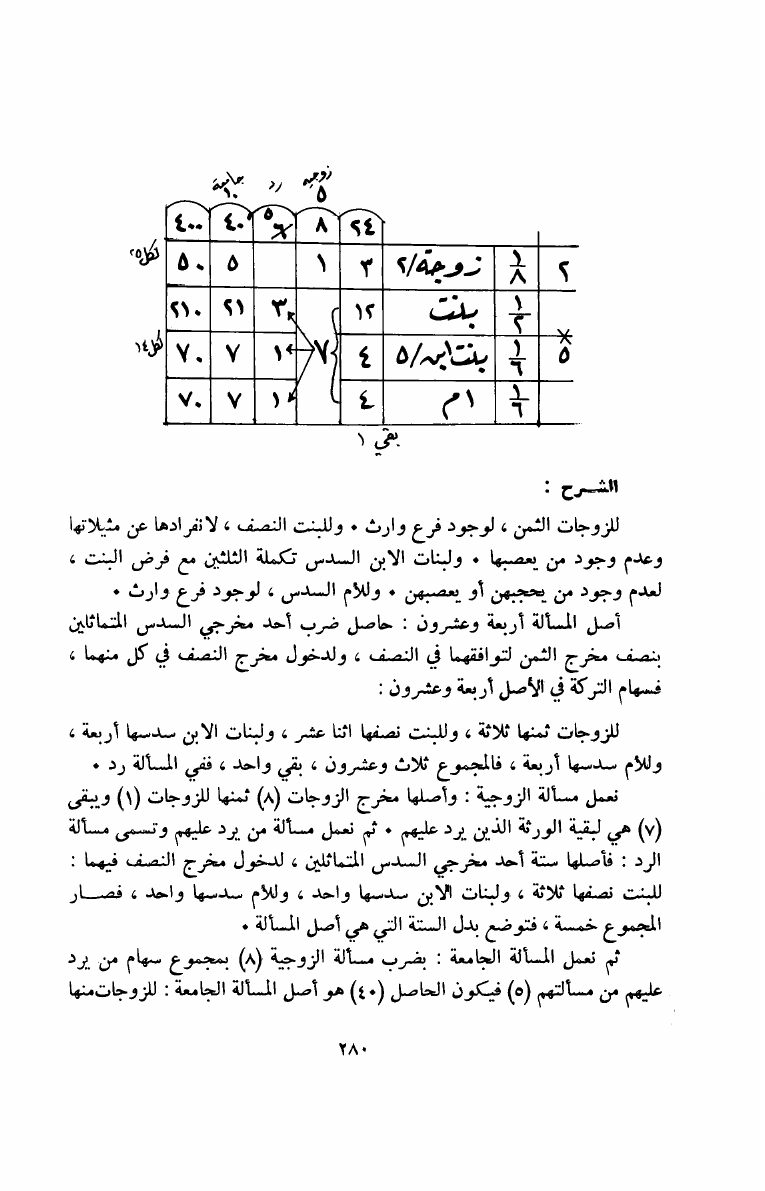 زوجية رد جامعة
٥ ١٠
٢٤ ٨ ٦ ٥ ٤٠ ٤٠٠
٢ ١/٨ زوجة/٢ ٣ ١ ٥ ٥٠ لكل ٢٥
١/٢ بنت ١٢ ٣ ٢١ ٢١٠
× ٥ ١/٦ بنت ابن/٥ ٤ ٧ ١ ٧ ٧٠ لكل ١٤
١/٦ ام ٤ ١ ٧ ٧٠
بقي ١
الشرح :
للزوجات الثمن ، لوجود فرع وارث • وللبنت النصف ، لانفرادها عن مثيلاتها
وعدم وجود من يعصبها • ولبنات الابن السدس تكملة الثلثين مع فرض البنت ،
لعدم وجود من يحجبهن أو يعصبهن • وللأم السدس ، لوجود فرع وارث •
أصل المسألة أربعة وعشرون : حاصل ضرب أحد مخرجي السدس المتماثلين
بنصف مخرج الثمن لتوافقهما في النصف ، ولدخول مخرج النصف في كل منهما ،
فسهام التركة في الأصل أربعة وعشرون :
للزوجات ثمنها ثلاثة ، وللبنت نصفها اثنا عشر ، ولبنات الابن سدسها أربعة ،
وللأم سدسها أربعة ، فالمجموع ثلاث وعشرون ، بقي واحد ، ففي المسألة رد •
نعمل مسألة الزوجية : وأصلها مخرج الزوجات (٨) ثمنها للزوجات (١) ويبقى
(٧) هي لبقية الورثة الذين يرد عليهم • ثم نعمل مسألة من يرد عليهم وتسمى مسألة
الرد : فأصلها ستة أحد مخرجي السدس المتماثلين ، لدخول مخرج النصف فيهما :
للبنت نصفها ثلاثة ، ولبنات الابن سدسها واحد ، وللأم سدسها واحد ، فصار
المجموع خمسة ، فتوضع بدل الستة التي هي أصل المسألة •
ثم نعمل المسألة الجامعة : بضرب مسألة الزوجية (٨) بمجموع سهام من يرد
عليهم من مسألتهم (٥) فيكون الحاصل (٤٠) هو أصل المسألة الجامعة : للزوجات منها
٢٨٠